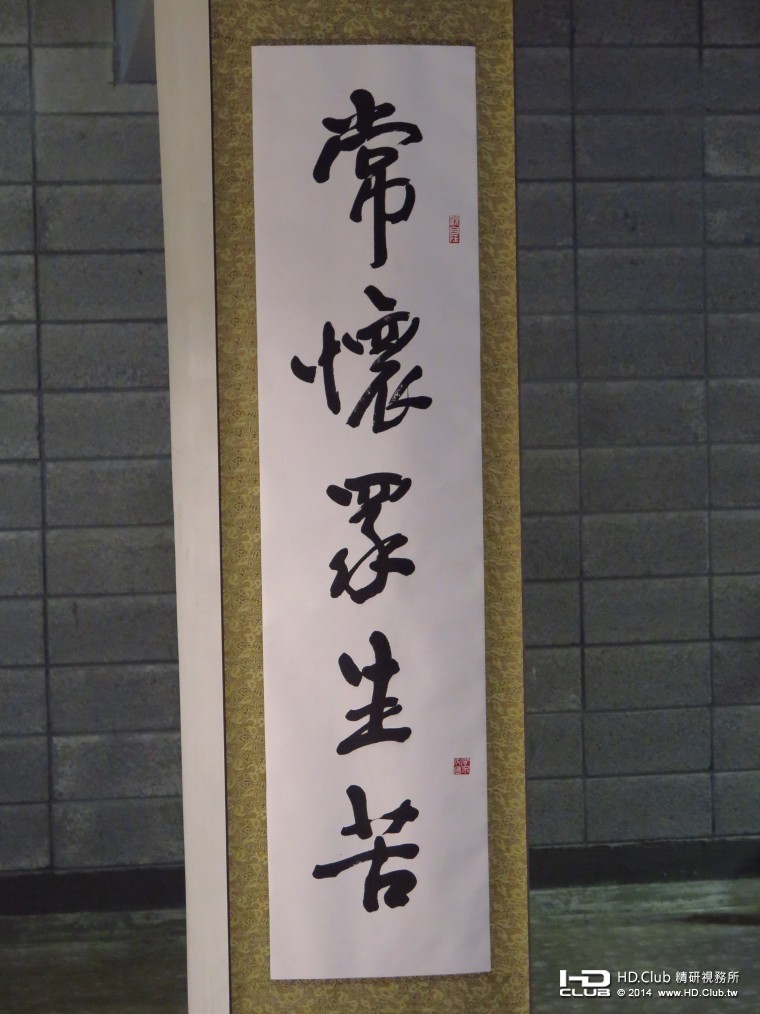 常懷眾生苦
HD CLUB
HD.Club 精研視務所
© 2014 www.HD.Club.tw